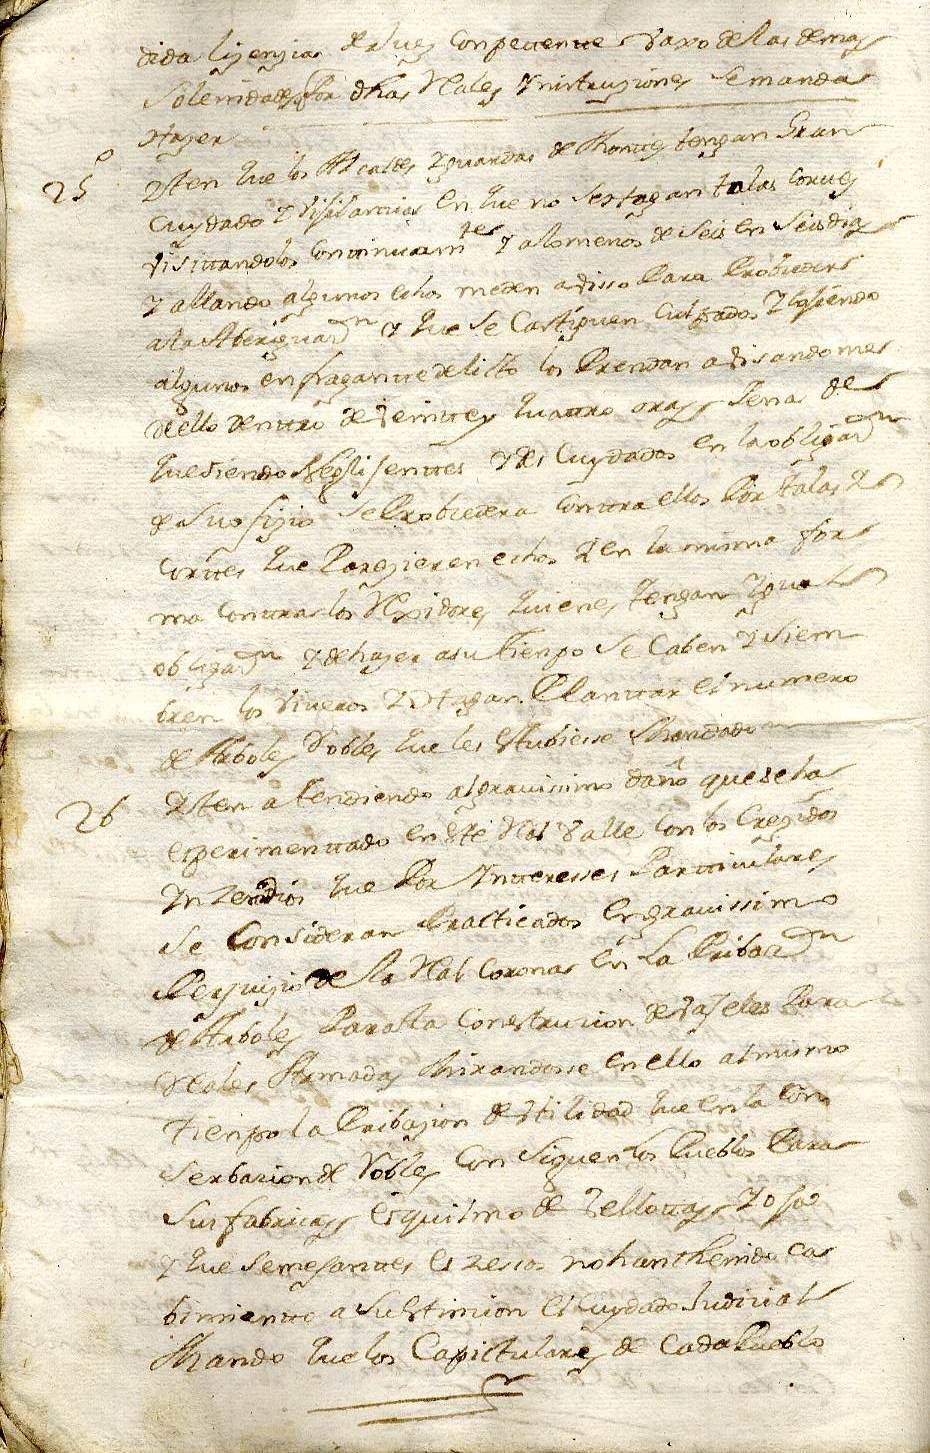 dida lizenzia de Juez Conpetente vaxo de las demas
Solemnidades Por dhas Reales Ynstruziones Se manda
Hazer
25º Yten que los Alcaldes y guardas de Montes tengan Gran
Cuydado y Vijilanzia En que no Se hagan talas Cortes
Visittandolos Continuamtes y alomenos de Seis en Seis dias
y allando algunos echos meden adisso Para Probeder
a la Aberiguazn y que Se Castiguen Culpados y Cojiendo
algunos en fragantte delicto los Prendan abisandome
de ello dentro de Veintte y quattro oras Pena de
que Siendo Neglijenttes y des Cuydados en la obligazn
de Su ofizio Se Probedera Contra ellos Por talas y
Corttes que Parezieren echos y en la misma for
ma Contra los Rexidores quienes tengan Ygual
obligazn y de hazer a su tienpo Se Caben y Siem
bren los viveros y Hagan Planttar el numero
de Arboles Robles que les Estubiesse Mandado
26 Yten atendiendo al gravissimo daño que se ha
Esperimenttado en Este Real Valle Con los Crezidos
Ynzendios que Por Ynteresses Partticulares
Se Consideran Practicados En gravissimo
Perjuizio de la Real Corona En La Pribazn
de Arboles Para la Construcion de Vajeles Para
Reales Armadas Mirandosse en ello al mismo
tienpo la Pribazion de Utilidad que en la Con
Serbazion de Robles Con Siguen los Pueblos Para
Sus fabricas Esquilmo de Vellottas y oja
y que Semejanttes Eszesos no han thenido Ca
bimiento a Su Estincion El Cuydado Judicial
Mando que los Capitulares de Cada Pueblo